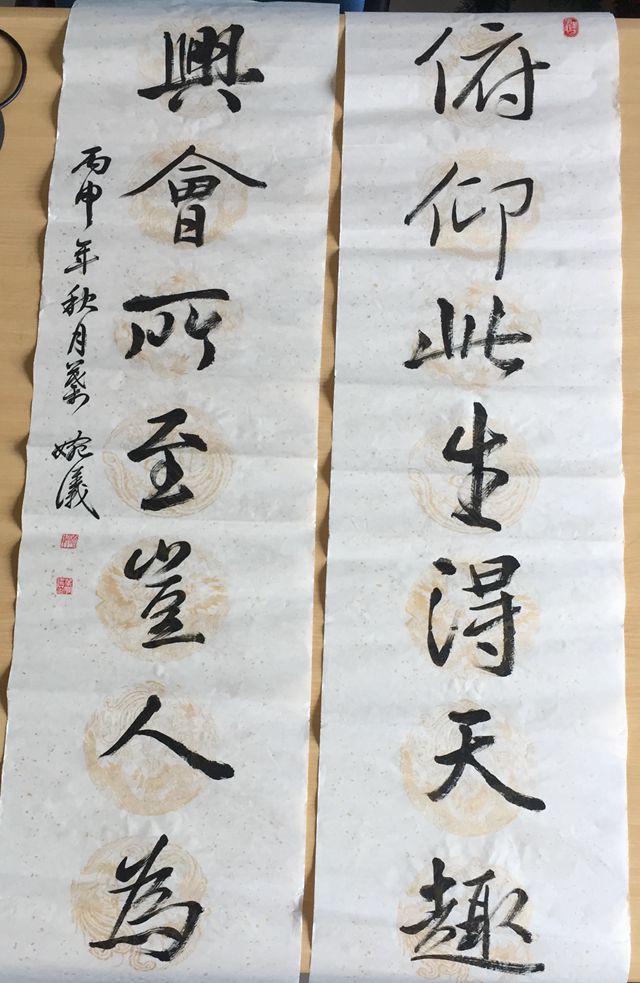 俯仰此生得天趣
興會所至豈人為
丙申年秋月蔡婉儀